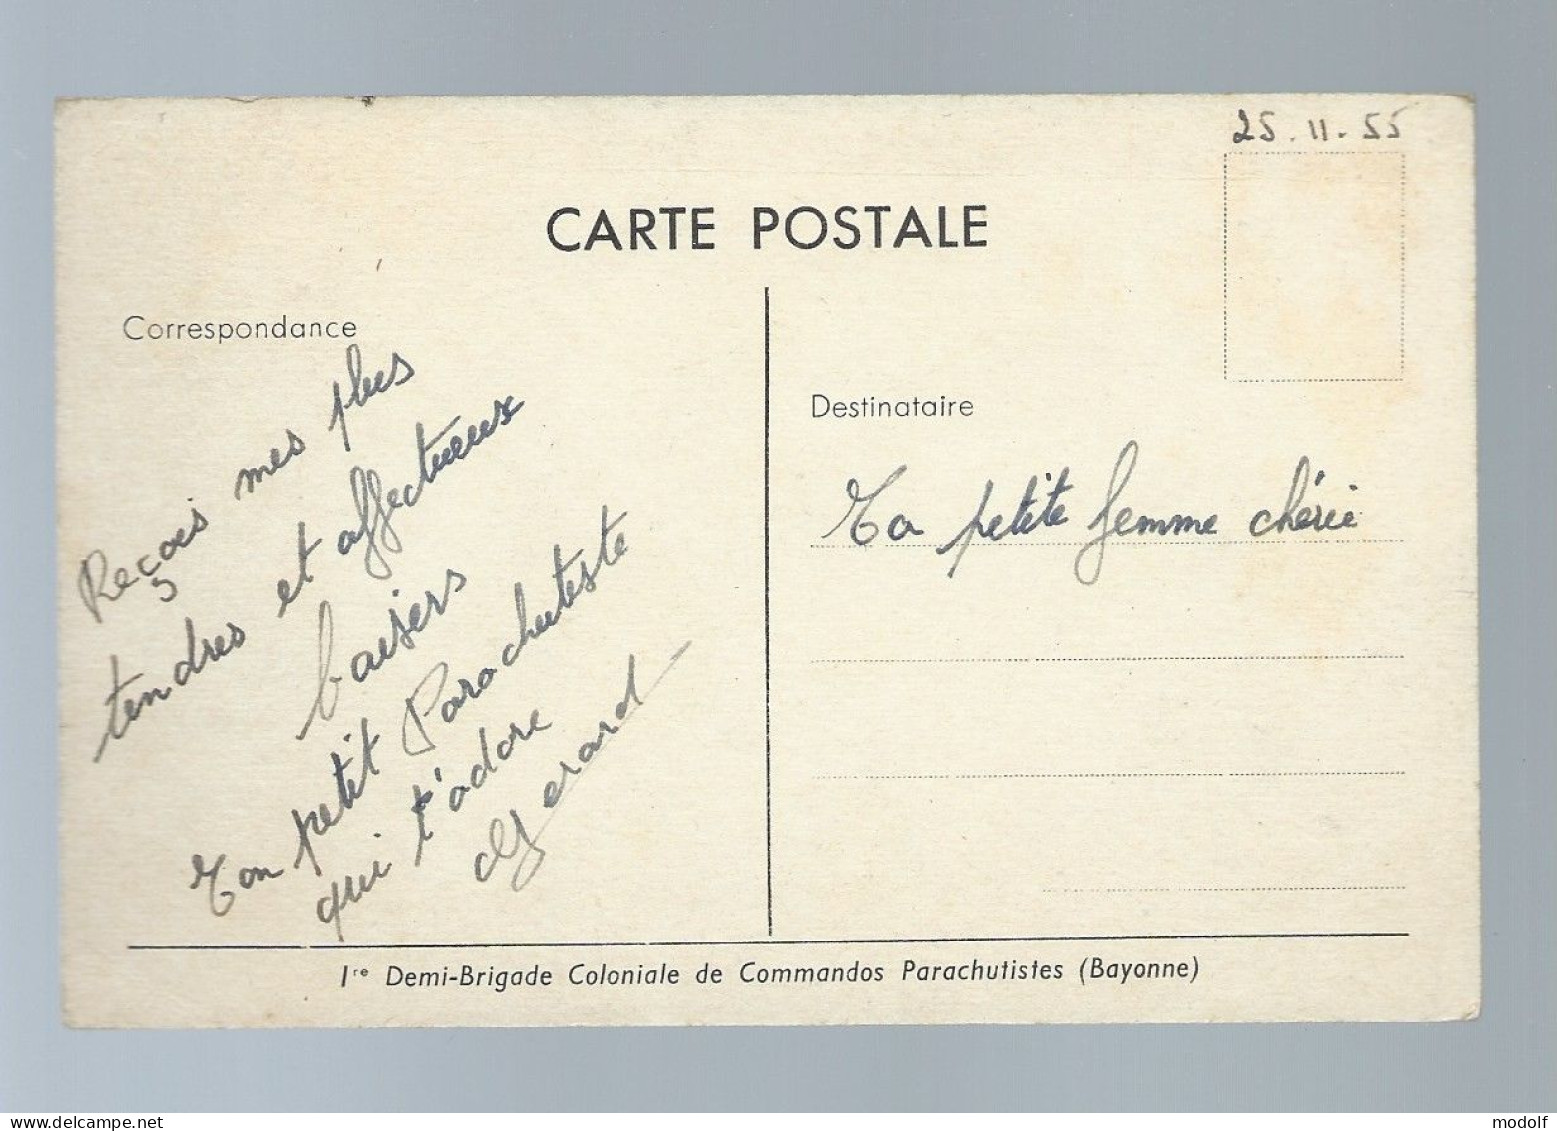 25.11.55
CARTE POSTALE
Correspondance
Reçois mes plus
tendres et affectueux
baisers
Ton petit Parachutiste
qui t'adore
Gerard
Destinataire
Ta petite femme chérie
1re Demi-Brigade Coloniale de Commandos Parachutistes (Bayonne)
modolf